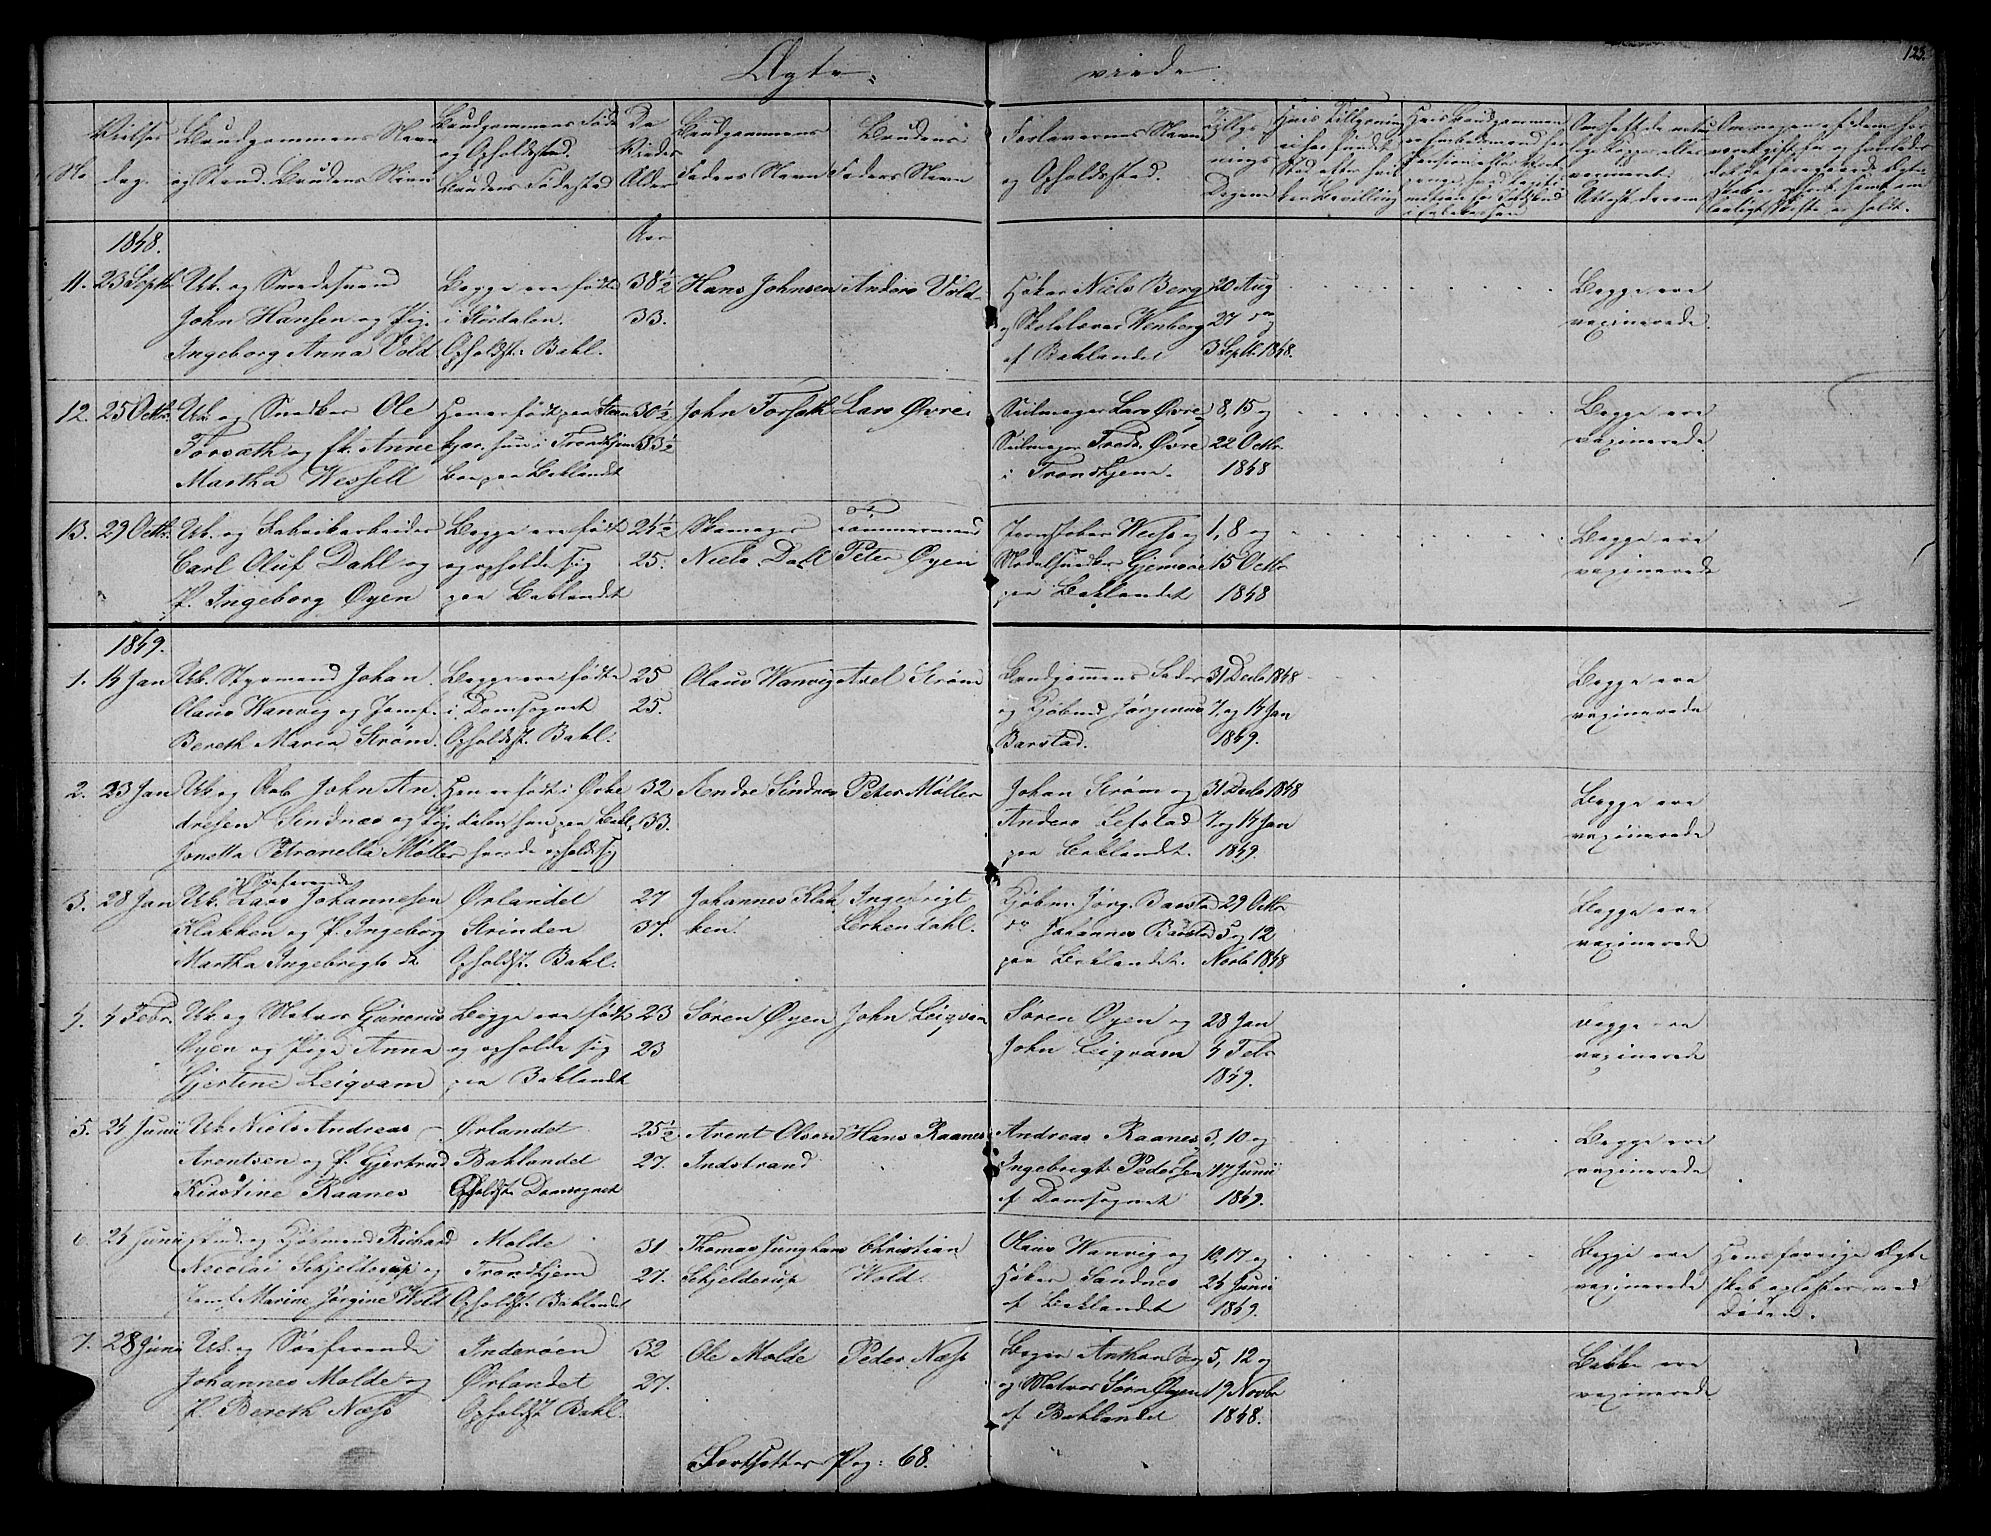 Ægte=
viede
123.
No
Vielses
dag.
Brudgommens Navn
og Stand. Brudens Navn
Brudgommens Føde
og Opholdssted.
Brudens Fødested
De
Viedes
Alder
Brudgommens
Faders Navn
Brudens
Faders Navn
Forlovernes Navn
og Opholdssted.
Tillys
nings
Dagene
1848.
Aar
11. 23 Septb.
Uk. og Smedesvend
John Hansen og Pig.
Ingeborg Anna Vold
Begge ere fødte
i Størdalen.
Opholdst. Bakl.
38½
33.
Hans Johnsen
Anders Vold
Høker Niels Berg
og Skolelærer Wenberg
af Baklandet
20 Aug
27 do
3 Septb. 1848.
Begge ere
vaxinerede.
12. 25 Octbr.
Uk. og Snedker Ole
Forsæth og fk. Anne
Martha Wessell
Han er født paa Sten
kjær. hun i Trondhjem
Boe paa Baklandet
30½
33½
John Forsæth
Lars Øvre
Seilmager Lars Øvre
Seilmager Fredr. Øvre
i Trondhjem.
8, 15 og
22 Octbr
1848
Begge ere
vaxinerede
13. 29 Octbr.
Uk. og Fabrikarbeider
Carl Oluf Dahl og
P. Ingeborg Øyen
Begge ere fødte
og opholde sig
paa Baklandet
24½
25.
Skomager
Niels Dahl
Tømmermand
Peter Øyen
og
paa Baklandet
1, 8 og
15 Octbr
1848
Begge ere
vaxinerede
1849.
1. 14 Jan
Uk. Styrmand Johan
Olaus Wanvig og Jomf.
Bereth Maria Strøm.
Begge ere fødte
i Domsognet
Opholdst. Bakl.
25
25.
Olaus Wanvig
Axel Strøm
Brudgommens Fader
og Kjøbmd Jørgen
Barstad.
31 Decb 1848
7 og 14 Jan
1849.
Begge ere
vaxinerede
2. 23 Jan
Uk. og Arb. John An
dresen Sindnæs og Pig
Jonetta Petronella Møller
Han er født i Ørke
dalen, hun paa Bakl,
hvor de opholde sig
32
33.
Andre Sindnæs
Peter Møller
Johan Strøm og
Anders Lefstad
paa Baklandet.
31 Decb 1848
7 og 14 Jan
1849.
Begge ere
vaxinerede
3. 28 Jan
og Søefarende
Uk. Lars Johannesen
Klakken og P. Ingeborg
Martha Ingebrigts dr
Ørlandet
Strinden
Opholdst. Bakl.
27
37.
Johannes Klak
ken.
Ingebrigt
Lerkendahl.
Kjøbm. Jørg. Barstad
do Johannes Barstad
paa Baklandet.
29 Octbr
5 og 12
Novb 1848
Begge ere
vaxinerede
4. 4 Febr.
Uk og Matros Gunerius
Øyen og Pige Anna
Gjertine Leiqvam
Begge ere fødte
og opholde sig
paa Baklandet
23
23
Søren Øyen
John Leiqvam
Søren Øyen og
John Leiqvam
28 Jan
4 Febr
1849.
Begge ere
vaxinerede
5. 24 Junii
Uk Niels Andreas
Arentsen og P. Gjertrud
Kirstine Raanes
Ørlandet
Baklandet
Opholdst. Domsognet
25½
27.
Arent Olsen
Indstrand
Hans Raanes
Andreas Raanes
Ingebrigt Pedersen
af Domsognet
3, 10 og
17 Junii
1849.
Begge ere
vaxinerede
6. 24 Junii
Enkemd. og Kjøbmand Richard
Nicolai Schjelderup og
Jomf. Marine Jørgine Wold
Molde
Trondhjem
Opholdst. Baklandet
31
27.
Thomas Junghans
Schjelderup
Christian
Wold.
Olaus Wanvig og
Høker Sandnes
af Baklandet
10, 17 og
24 Junii
1849.
Begge ere
vaxinerede
Hans forrige Ægte
skab opløstes ved
Døden.
7. 28 Juni
Uk. og Søefarende
Johannes Molde og
P. Bereth Næss
Inderøen
Ørlandet
Opholdst. Bakl.
32
27.
Ole Molde
Peder Næss
Bager Anthon Berg
og Matros Sørn Øyen
af Baklandet
5, 12 og
19 Novbr
1848.
Begge ere
vaxinerede
Fortsættes Pag: 68.